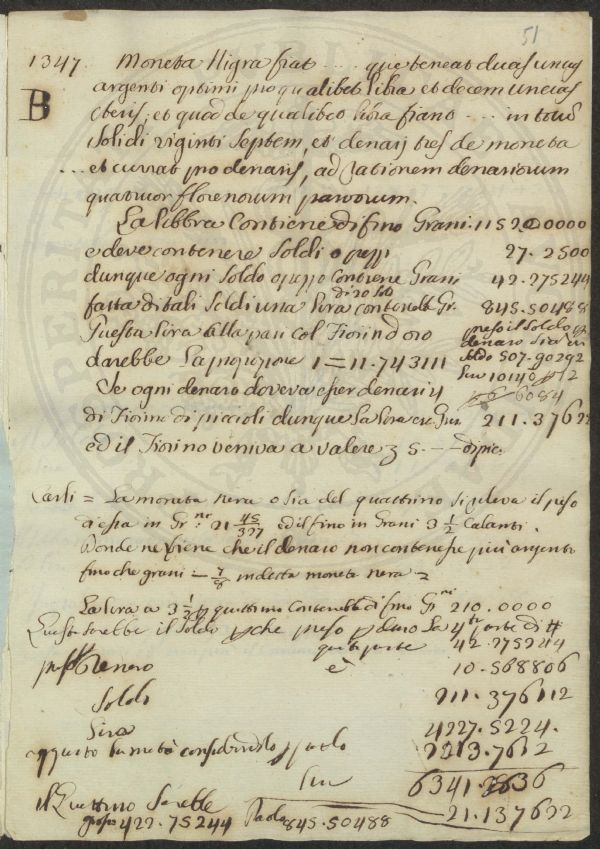 51
1347 Moneta Nigra fiat .... que teneat duas uncias
B
argenti optimi pro qualibet libra et decem uncias
et quod de qualibet libra fiant .... in totu
solidi viginti septem, et denarj tres de moneta
... et currat pro denarijs, ad rationem denariorum
quatuor florenorum parvorum.
La libbra Contiene di fino Grani. 11520.0000
e deve contenere Soldi o pezzi 27.2500
dunque ogni Soldo o pezzo Contiene Grani 42.275244
di 20 Soldi
fatta di tali Soldi una Lira contenebbe Gr. 845.50488
Questa Lira alla pari col Fiorin d'oro
preso il Soldo p
denaro Sia in
darebbe La proporzione 1 = 11.743111 Soldo 507.90292
10140
Se ogni denaro doveva esser denari 4 6084
di Fiorino di piccioli dunque La Lira era Grni 211.37622
ed il Fiorino veniva a valere 3 S. -- di pic.
Carli = La moneta nera o sia del quattrino si puleva il peso
di essa in Gr.ni 21 45/327 ed il fino in Grani 3 1/2 Calanti.
Donde ne viene che il denaro non contenesse più argento
fino che grani - 7/8 in detta moneta nera =
La Lira a 3 1/2 p quattrino Contenebbe di fino Gr.ni 210.0000
Questo sarebbe il Soldo pche preso p denaro La 4ta parte di #
questa parte 42.275244
è 10.568806
Soldo 211.376112
Lira 4227.5224.
aggiunto la metà considerandolo 2113.7612
6341.2836
il Quattrino Sarebbe 21.137622
grosso 422.75244 Paolo 845.50488